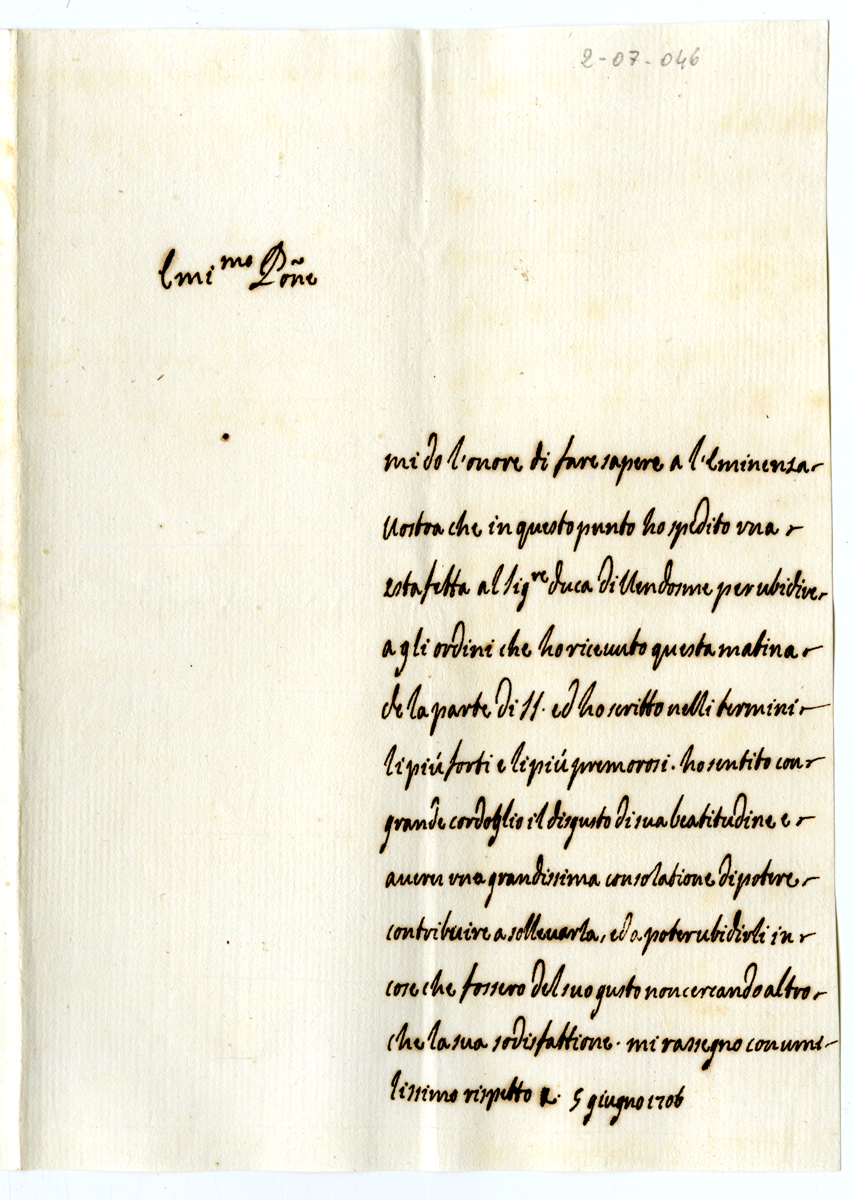 2-07-046
Emi^mo Põne
mi do l'onore di fare sapere a l'Eminenza
Vostra che in questo punto ho spedito vna
estafetta al Sig^re duca di Uendosme per ubidire
a gli ordini che ho riceuuto questa matina
de la parte di SS. ed ho scritto nelli termini
li più forti e li più premorosi. ho sentito con
grande cordoglio il disgusto di sua beatitudine e
auerei vna grandissima consolatione di potere
contribuire a solleuarla, ed a poter ubidirli in
cose che fossero del suo gusto non cercando altro
che la sua sodisfattione. mi rassegno con umi
lissimo rispetto 5 giugno 1706